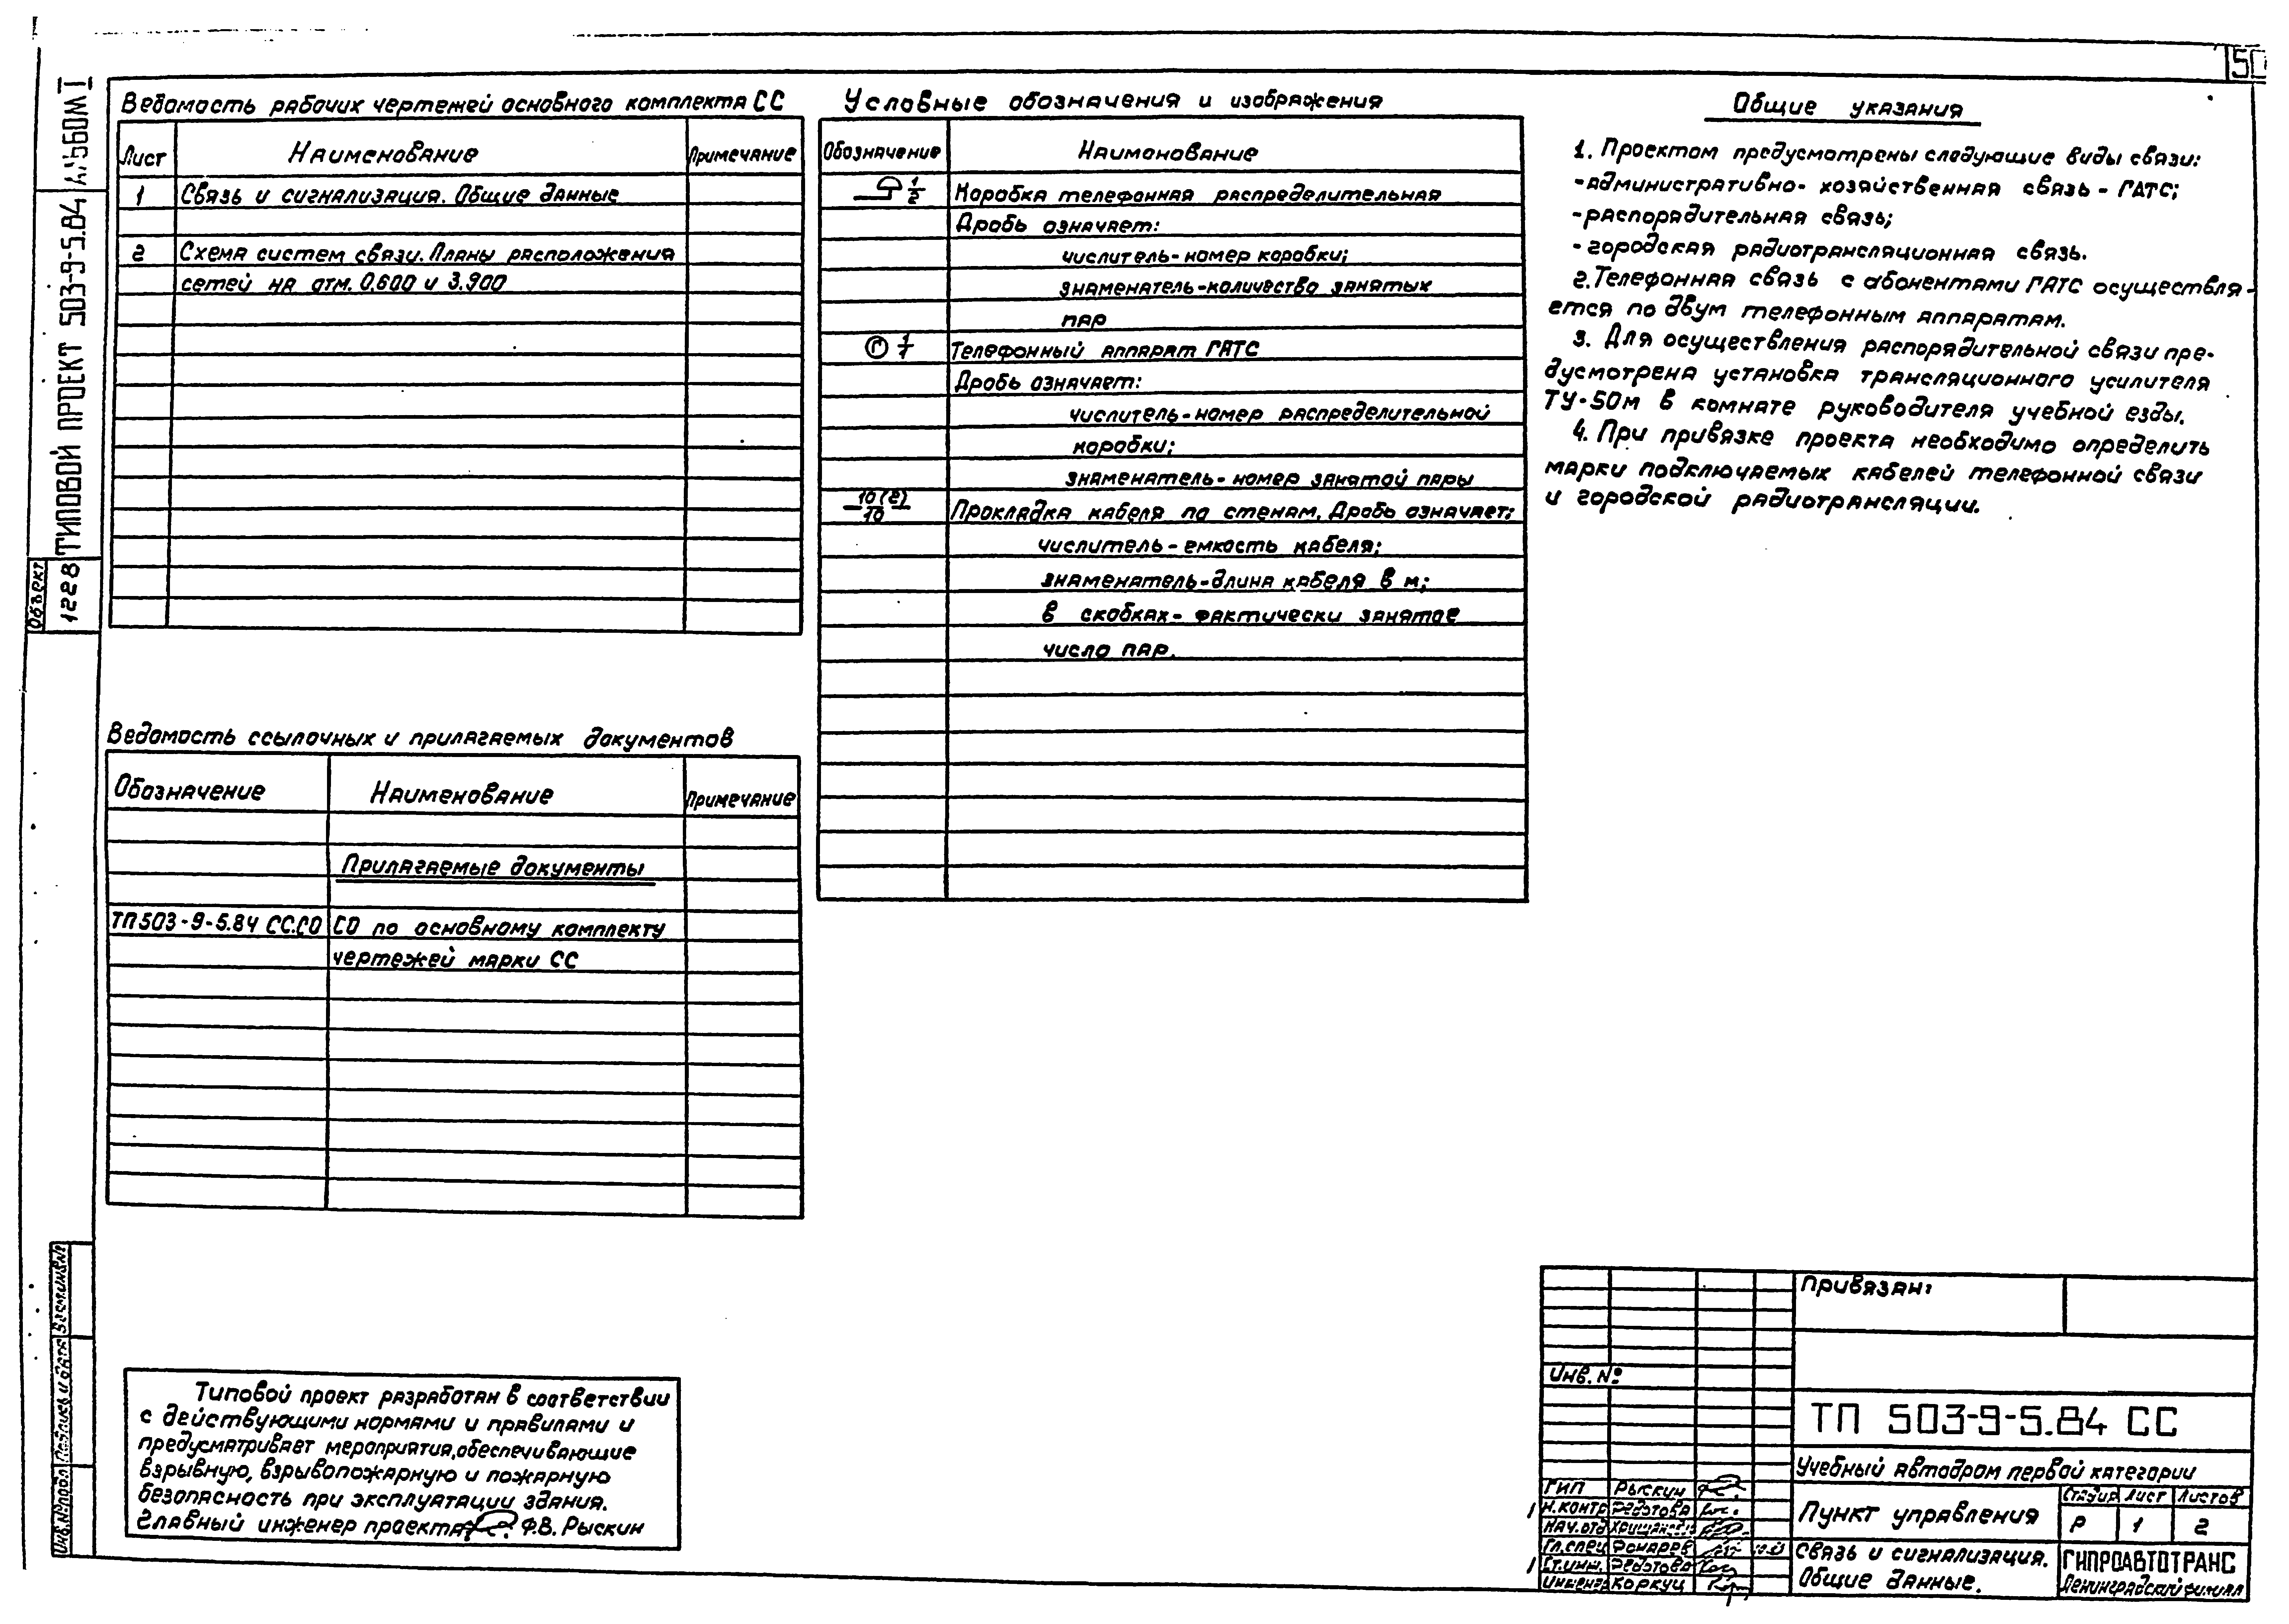 50
АЛЬБОМ I
ТИПОВОЙ ПРОЕКТ 503-9-5.84
Объект
1228
Ведомость рабочих чертежей основного комплекта СС
Лист Наименование Примечание
1 Связь и сигнализация. Общие данные
2 Схема систем связи. Планы расположения
сетей на отм. 0.600 и 3.900
Ведомость ссылочных и прилагаемых документов
Обозначение Наименование Примечание
Прилагаемые документы
ТП503-9-5.84 СС.СО СО по основному комплекту
чертежей марки СС
Условные обозначения и изображения
Обозначение Наименование
1/2 Коробка телефонная распределительная
Дробь означает:
числитель-номер коробки;
знаменатель-количество занятых
пар
Г 1/1 Телефонный аппарат ГАТС
Дробь означает:
числитель-номер распределительной
коробки;
знаменатель-номер занятой пары
10(2)/10 Прокладка кабеля по стенам. Дробь означает:
числитель-емкость кабеля;
знаменатель-длина кабеля в м;
в скобках-фактически занятое
число пар.
Общие указания
1. Проектом предусмотрены следующие виды связи:
-административно-хозяйственная связь-ГАТС;
-распорядительная связь;
-городская радиотрансляционная связь.
2. Телефонная связь с абонентами ГАТС осуществля-
ется по двум телефонным аппаратам.
3. Для осуществления распорядительной связи пре-
дусмотрена установка трансляционного усилителя
ТУ-50м в комнате руководителя учебной езды.
4. При привязке проекта необходимо определить
марки подключаемых кабелей телефонной связи
и городской радиотрансляции.
Типовой проект разработан в соответствии
с действующими нормами и правилами и
предусматривает мероприятия, обеспечивающие
взрывную, взрывопожарную и пожарную
безопасность при эксплуатации здания.
Главный инженер проекта Ф.В. Рыскин
Инв.№подл. Подпись и дата Взам.инв.№
Привязан:
Инв. №
ТП 503-9-5.84 СС
Учебный автодром первой категории
Пункт управления
Стадия Лист Листов
Р 1 2
Связь и сигнализация.
Общие данные.
ГИПРОАВТОТРАНС
Ленинградский филиал
ГИП Рыскин
1 Н.контр Федотова
Нач.отд
Гл.спец Фонарев
1 Ст.инж. Федотова
Инженер Коркуц